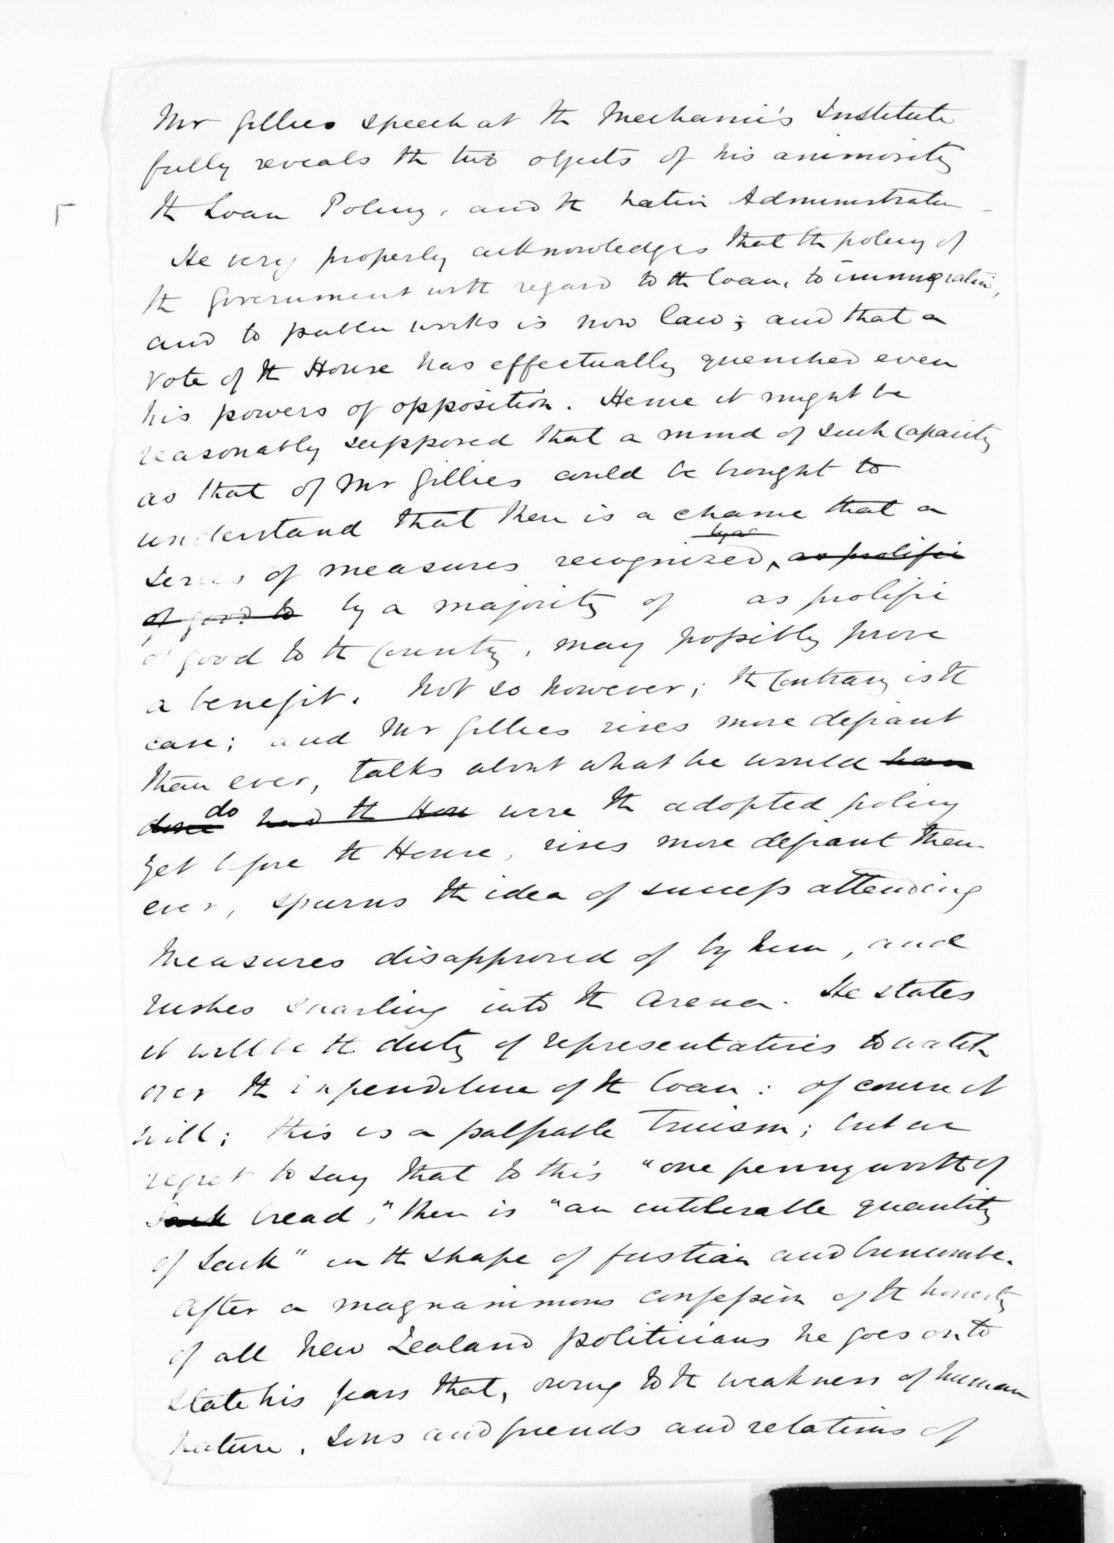 Mr Gillies speech at the Mechanic's Institute
fully reveals the two objects of his animosity
the Loan Policy, and the Native Administration
He very properly acknowledges that the policy of
the Government with regard to the loan, to immigration,
and to public works is now law; and that a
vote of the House has effectually quenched even
his powers of opposition. Hence it might be
reasonably supposed that a mind of such capacity
as that of Mr Gillies could be brought to
understand that there is a chance that a
series of measures recognized, as prolific
of good to by a majority of as prolific
of good to the Country, may possibly prove
a benefit. Not so however; the Contrary is the
case; and Mr Gillies rises more defiant
than ever, talks about what he would have
done do had the House were the adopted policy
yet before the House, rises more defiant than
ever, spurns the idea of success attending
measures disapproved of by him, and
rushes snarling into the arena. He states
it will be the duty of representatives to watch
over the expenditure of the loan: of course it
will; this is a palpable truism; but we
regret to say that to this "one pennyworth of
Sack bread," there is "an intolerable quantity
of Sack" in the shape of fustian and buncombe.
After a magnanimous confession of the honesty
of all New Zealand politicians he goes on to
state his fears that, owing to the weakness of human
nature, sons and friends and relations of